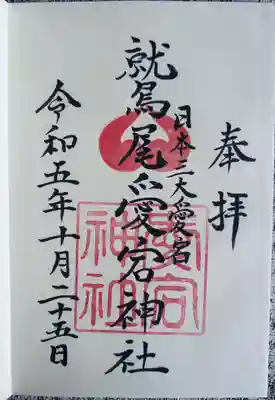 奉拝
日本三大愛宕
鷲尾愛宕神社
愛宕神社
令和五年十月二十五日